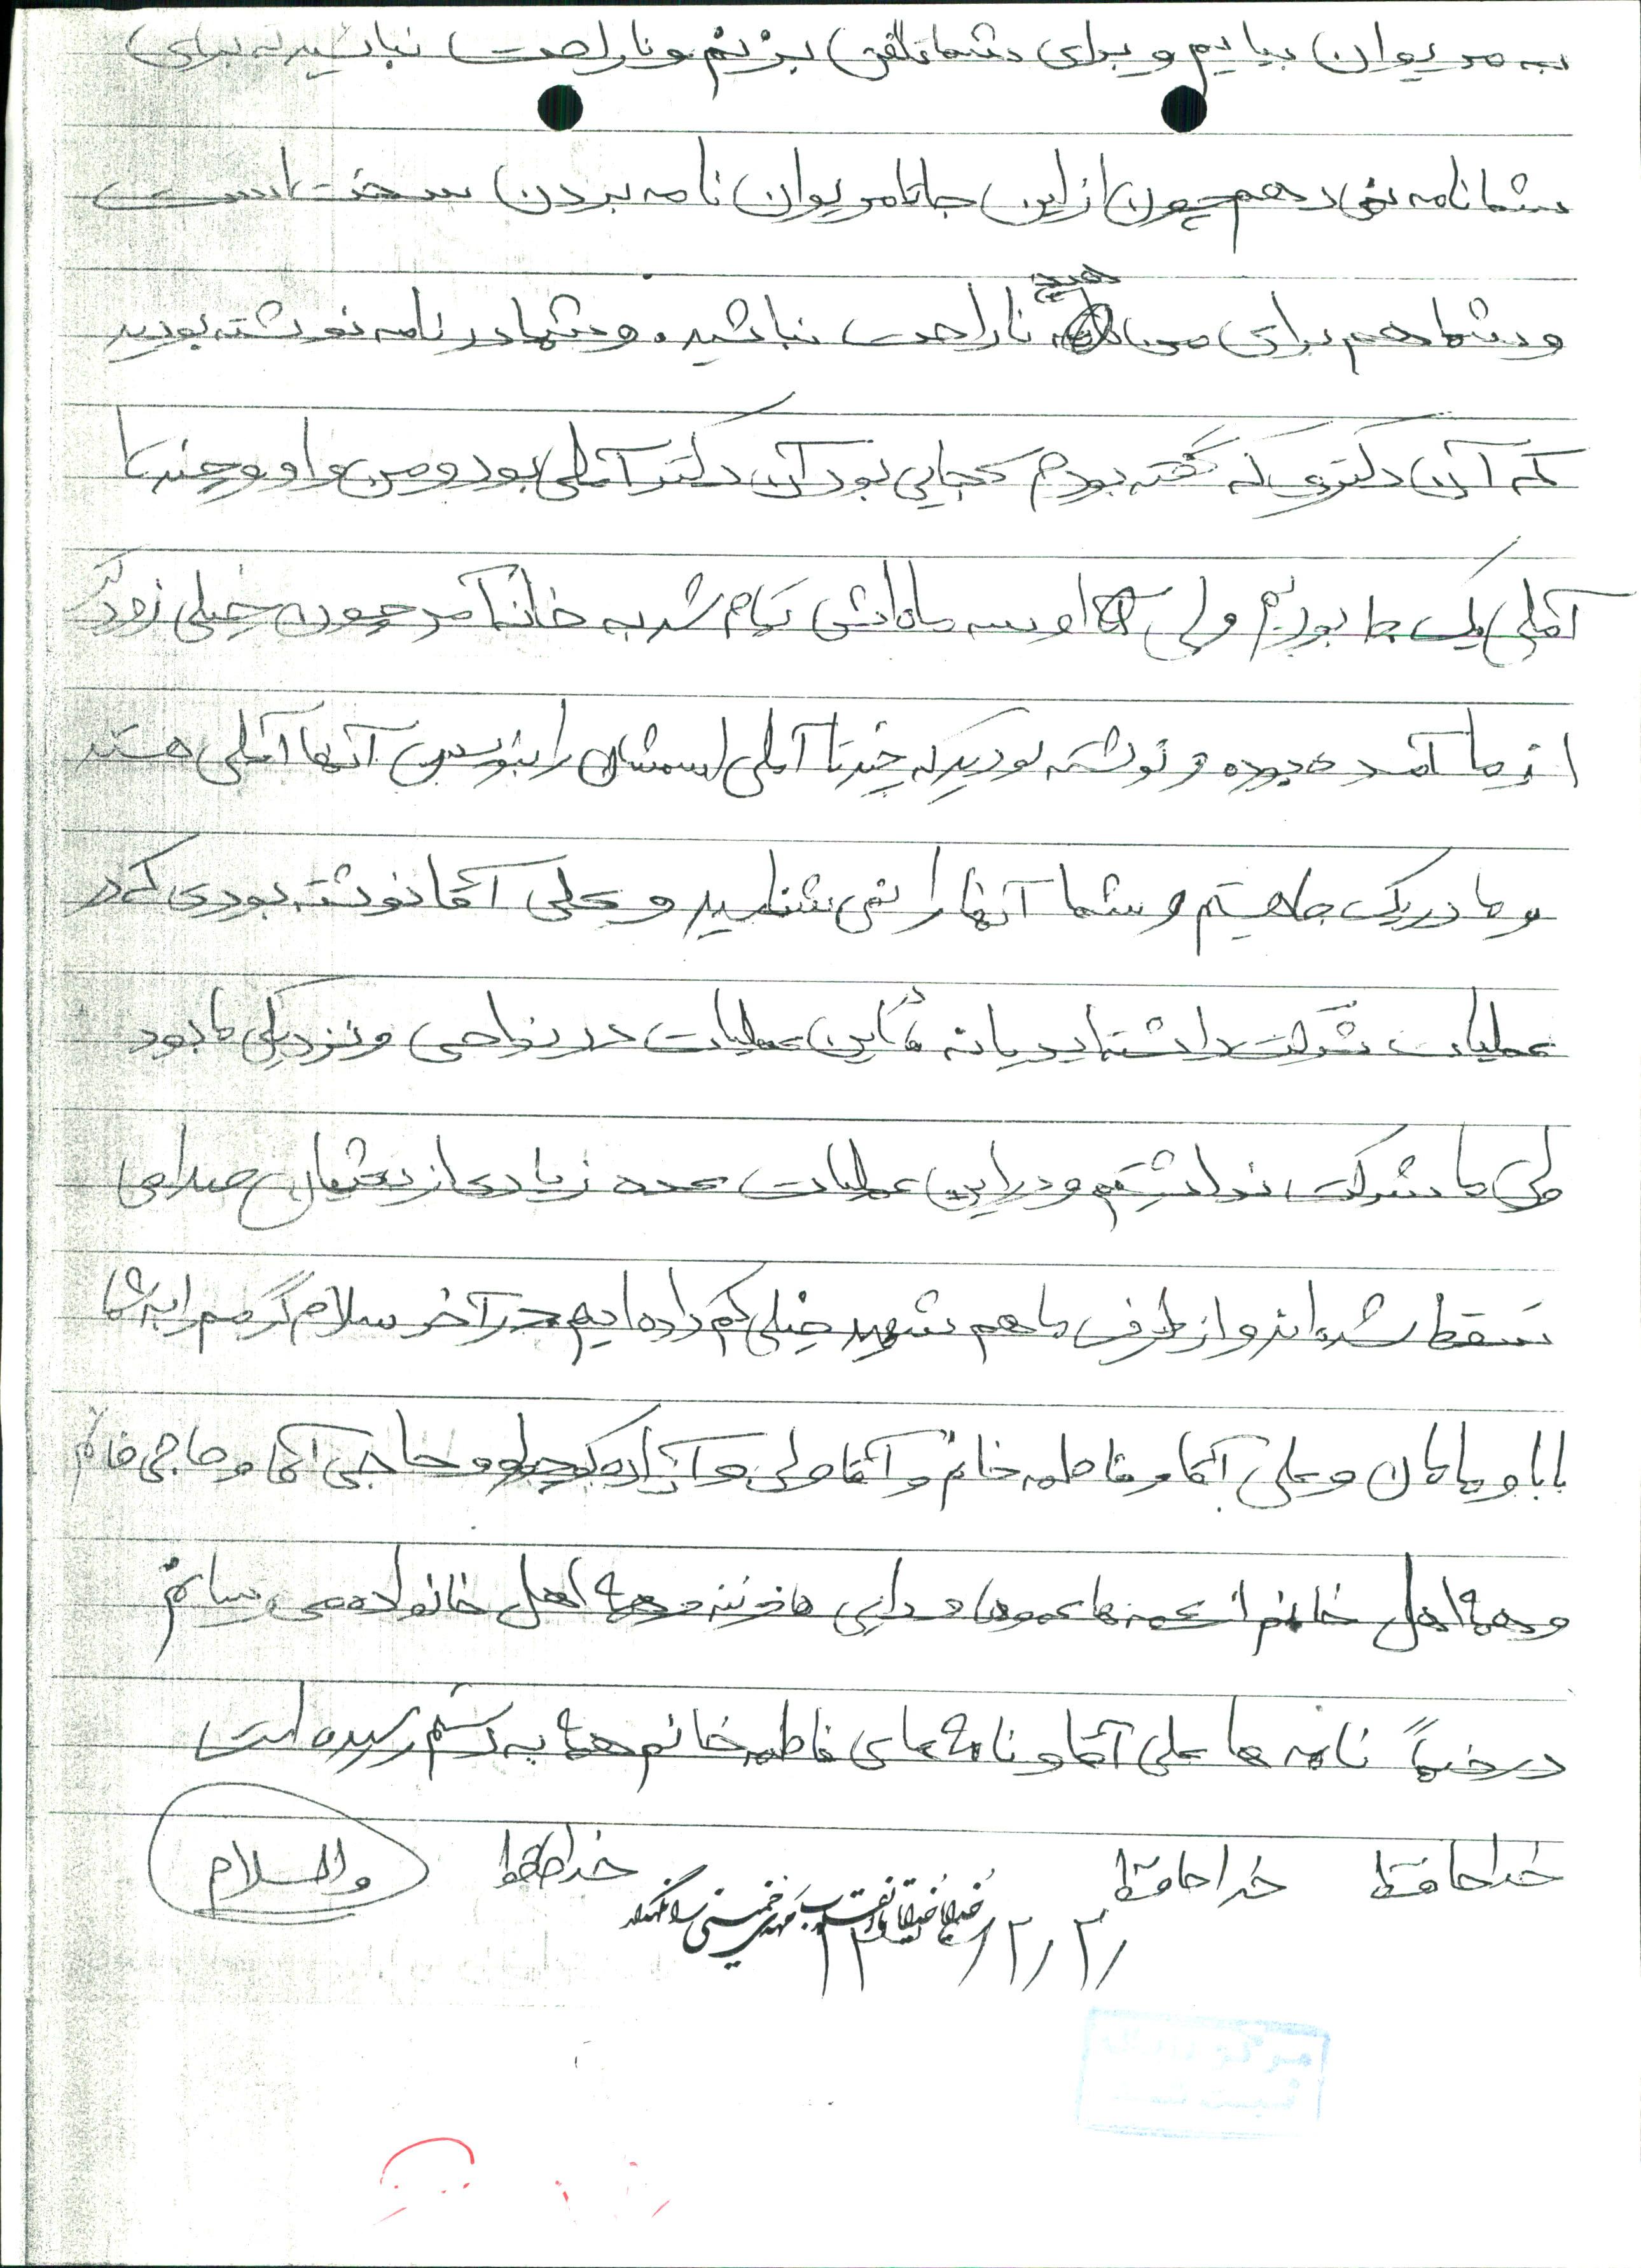 به مریوان بیایم و برای شما تلفن بزنم و ناراحت نباشید که برای
شما نامه نمی دهم چون از این جا تا مریوان نامه بردن سخت است
و شما هم برای من هیچ ناراحت نباشید. و شما در نامه نوشته بودید
که آن دکتری که گفته بودم کجایی بود آن دکتر آملی بود و من و او و چند تا
آملی یک جا بودیم ولی او سه ماه اش تمام شد به خانه آمد چون خیلی زودتر
از ما آمده بوده و نوشته بودید که چند تا آملی اسمشان را بنویس آنها آملی هستند
و ما در یک جا هستیم و شما آنها را نمی شناسید و علی آقا نوشته بودی که در
عملیات شرکت داشته اید یا نه این عملیات در نواحی و نزدیکی ما بود
ولی ما شرکت نداشتیم و در این عملیات عده زیادی از دشمنان صدامی
سقط شده اند و از طرف ما هم شهید خیلی کم داده ایم در آخر سلام گرمم را به شما
بابا و مامان و علی آقا و فاطمه خانم و آقا ولی و آزاده کوچولو و حاجی آقا و حاجی خانم
و همه اهل خانه از عمه ها عموها و دایی ها و ننه و همه اهل خانواده می رسانم
در ضمناً نامه ها علی آقا و نامه های فاطمه خانم همه به دستم رسیده است
خداحافظ خداحافظ خداحافظ والسلام
خدایا خدایا تا انقلاب مهدی خمینی را نگهدار